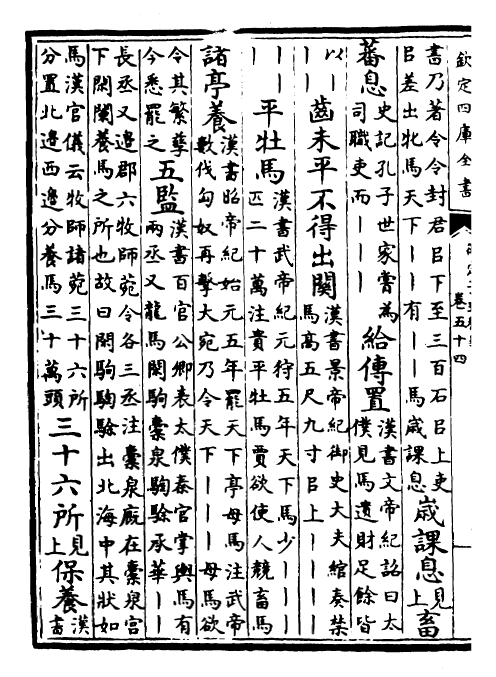 欽定四庫全書
卷五十四
書乃著令令封君㠯下至三百石㠯上吏
㠯差出牝馬天下丨丨有丨丨馬歲課息
歲課息
見上
畜
蕃息
史記孔子世家嘗為
司職吏而丨丨丨丨
給傳置
漢書文帝紀詔曰太
僕見馬遺財足餘皆
以丨丨
丨丨
齒未平不得出關
漢書景帝紀御史大夫綰奏禁
馬高五尺九寸㠯上丨丨丨丨
丨丨
丨丨
平牡馬
漢書武帝紀元狩五年天下馬少丨丨丨
匹二十萬注貴平牡馬賈欲使人競畜馬
諸亭養
漢書昭帝紀始元五年罷天下亭母馬注武帝
數伐匈奴再擊大宛乃令天下丨丨丨母馬欲
令其繁孳
今悉罷之
五監
漢書百官公卿表太僕秦官掌輿馬有
兩丞又龍馬閑駒橐泉騊駼承華丨丨
長丞又邊郡六牧師菀令各三丞注橐泉廐在橐泉宫
下閑闌養馬之所也故曰閑駒騊駼出北海中其狀如
馬漢官儀云牧師諸菀三十六所
分置北邊西邊分養馬三十萬頭
三十六所
見上
保養
漢書